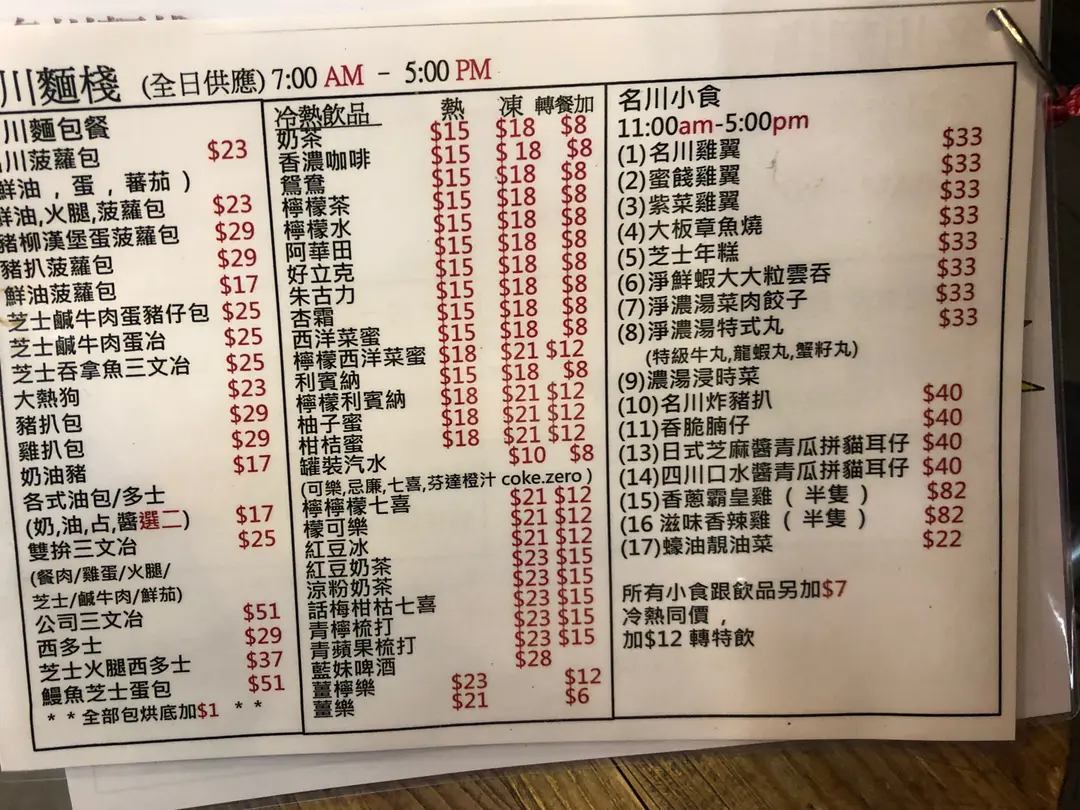 川麵棧 (全日供應) 7:00 AM - 5:00 PM
川麵包餐
川菠蘿包 $23
鮮油，蛋，蕃茄）
鮮油,火腿,菠蘿包 $23
豬柳漢堡蛋菠蘿包 $29
豬扒菠蘿包 $29
鮮油菠蘿包 $17
芝士鹹牛肉蛋豬仔包 $25
芝士鹹牛肉蛋治 $25
芝士吞拿魚三文治 $25
大熱狗 $23
豬扒包 $29
雞扒包 $29
奶油豬 $17
各式油包/多士
(奶,油,占,醬選二) $17
雙拚三文治 $25
(餐肉/雞蛋/火腿/
芝士/鹹牛肉/鮮茄)
公司三文治 $51
西多士 $29
芝士火腿西多士 $37
鰻魚芝士蛋包 $51
* * 全部包烘底加$1 * *
冷熱飲品 熱 凍 轉餐加
奶茶 $15 $18 $8
香濃咖啡 $15 $18 $8
鴛鴦 $15 $18 $8
檸檬茶 $15 $18 $8
檸檬水 $15 $18 $8
阿華田 $15 $18 $8
好立克 $15 $18 $8
朱古力 $15 $18 $8
杏霜 $15 $18 $8
西洋菜蜜 $15 $18 $8
檸檬西洋菜蜜 $18 $21 $12
利賓納 $15 $18 $8
檸檬利賓納 $18 $21 $12
柚子蜜 $18 $21 $12
柑桔蜜 $18 $21 $12
罐裝汽水 $10 $8
(可樂,忌廉,七喜,芬達橙汁 coke.zero )
檸檸檬七喜 $21 $12
檬可樂 $21 $12
紅豆冰 $21 $12
紅豆奶茶 $23 $15
涼粉奶茶 $23 $15
話梅柑枯七喜 $23 $15
青檸梳打 $23 $15
青蘋果梳打 $23 $15
藍妹啤酒 $28
薑檸樂 $23 $12
薑樂 $21 $6
名川小食
11:00am-5:00pm
(1)名川雞翼 $33
(2)蜜餞雞翼 $33
(3)紫菜雞翼 $33
(4)大板章魚燒 $33
(5)芝士年糕 $33
(6)淨鮮蝦大大粒雲吞 $33
(7)淨濃湯菜肉餃子 $33
(8)淨濃湯特式丸 $33
(特級牛丸,龍蝦丸,蟹籽丸)
(9)濃湯浸時菜
(10)名川炸豬扒 $40
(11)香脆腩仔 $40
(13)日式芝麻醬青瓜拼貓耳仔 $40
(14)四川口水醬青瓜拼貓耳仔 $40
(15)香蔥霸皇雞（半隻） $82
(16 滋味香辣雞（半隻） $82
(17)蠔油靚油菜 $22
所有小食跟飲品另加$7
冷熱同價，
加$12 轉特飲